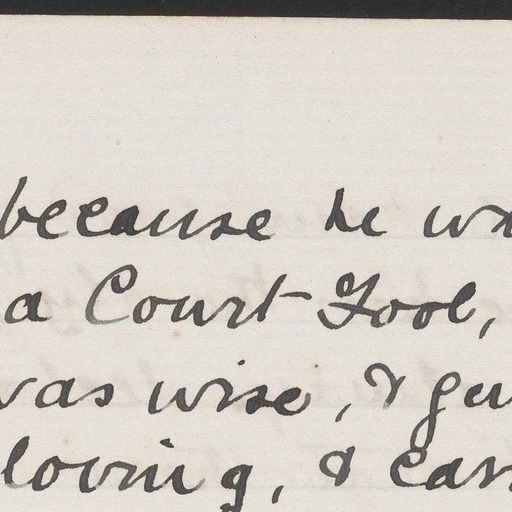 because he wa
a Court Fool,
was wise, & gen
loving, & care